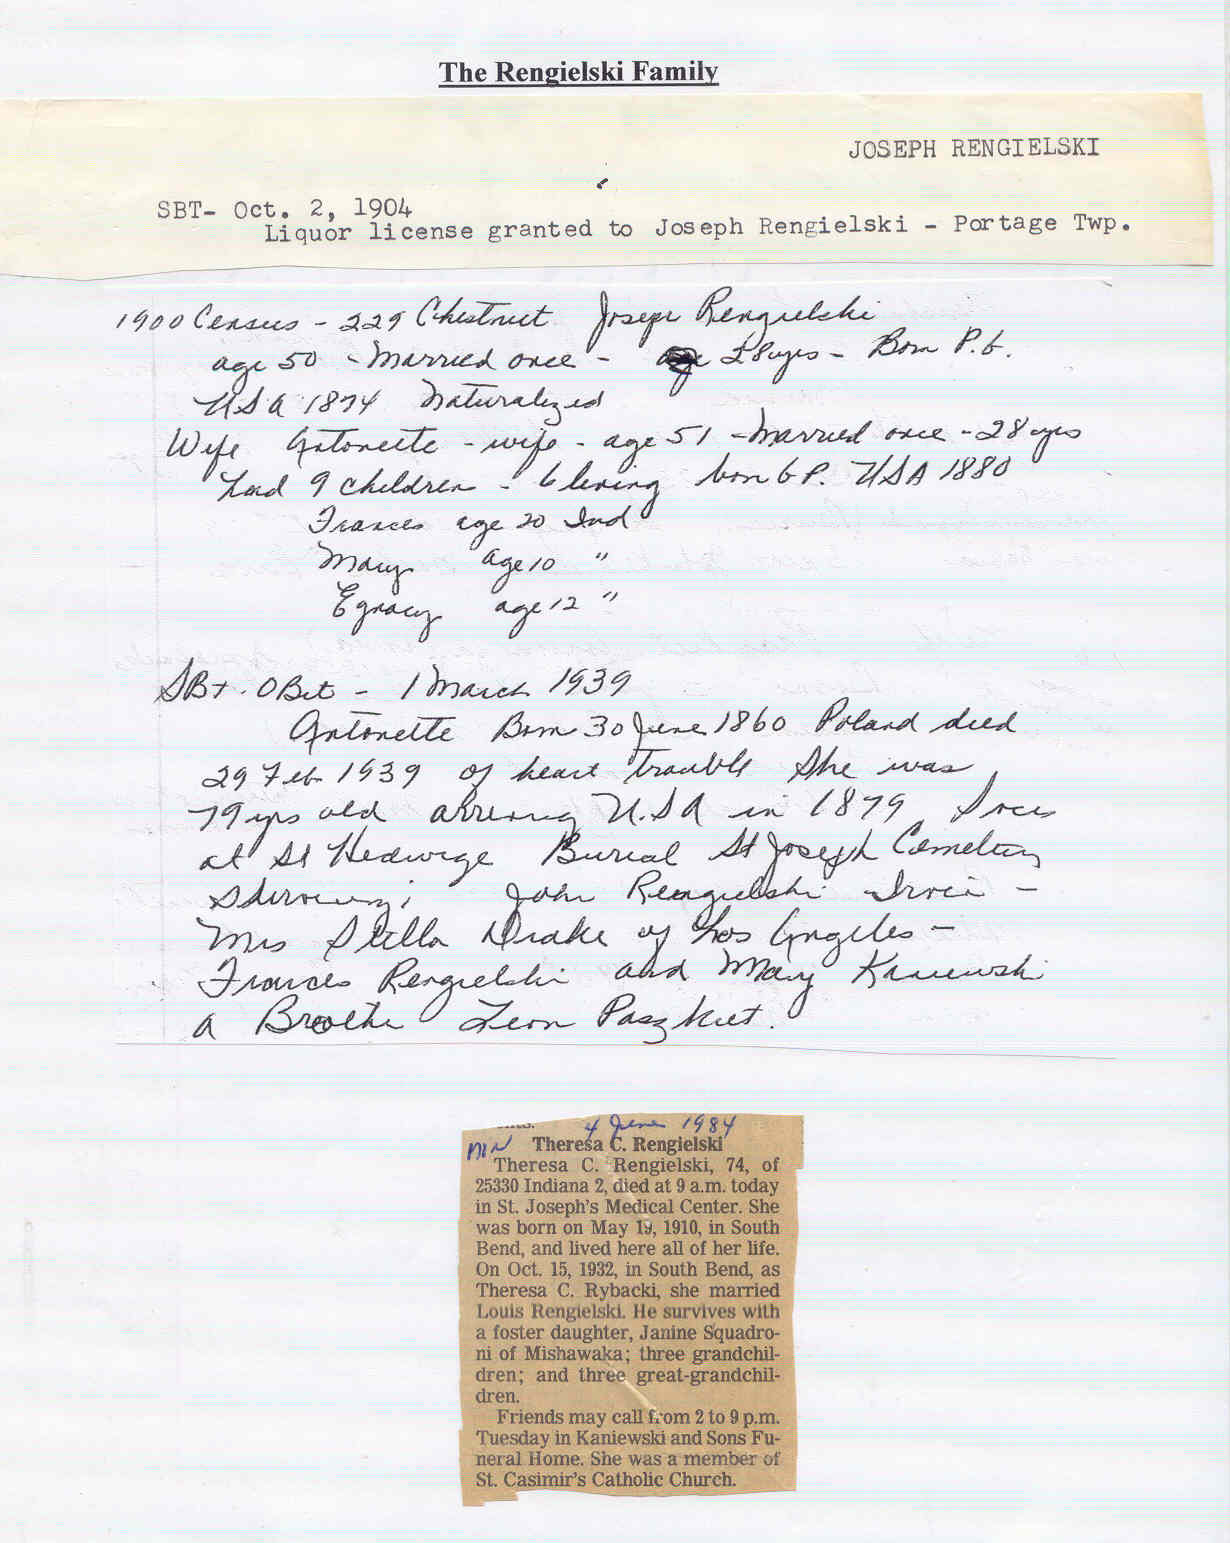 The Rengielski Family
JOSEPH RENGIELSKI
SBT- Oct. 2, 1904
Liquor license granted to Joseph Rengielski - Portage Twp.
1900 Census - 229 Chestnut Joseph Rengielski
age 50 - Married once - 28 yrs - Born P.G.
USA 1874 Naturalized
Wife Antonette - wife - age 51 - Married once - 28 yrs
had 9 children - 6 living born GP. USA 1880
Frances age 20 Ind
Mary age 10 "
Egnacy age 12 "
SBT. OBit - 1 March 1939
Antonette Born 30 June 1860 Poland died
29 Feb 1939 of heart trouble She was
79 yrs old arriving U.S.A in 1879
at St Hedwige Burial St Joseph Cemetery
John Rengielski -
Mrs Stella Drake of Los Angeles -
Frances Rengielski and Mary Kaniewski
a Brothe Leon Paszkiet.
4 June 1984
Theresa C. Rengielski
Theresa C. Rengielski, 74, of
25330 Indiana 2, died at 9 a.m. today
in St. Joseph's Medical Center. She
was born on May 19, 1910, in South
Bend, and lived here all of her life.
On Oct. 15, 1932, in South Bend, as
Theresa C. Rybacki, she married
Louis Rengielski. He survives with
a foster daughter, Janine Squadro-
ni of Mishawaka; three grandchil-
dren; and three great-grandchil-
dren.
Friends may call from 2 to 9 p.m.
Tuesday in Kaniewski and Sons Fu-
neral Home. She was a member of
St. Casimir's Catholic Church.